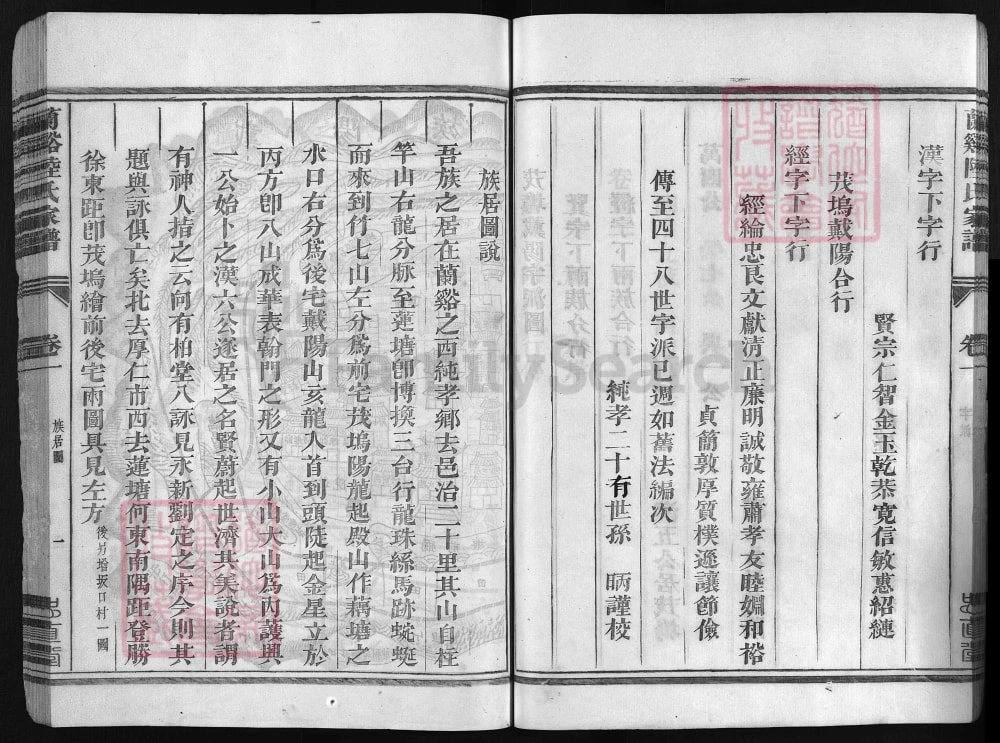 蘭谿陸氏家譜
卷一
漢字下字行
賢宗仁智金玉乾恭寬信敏惠紹縺
茂塢戴陽合行
經字下字行
經綸忠良文獻清正廉明誠敬雍肅孝友睦婣和裕
貞簡敦厚質樸遜讓節儉
傳至四十八世字派已週如舊法編次
純孝二十有世孫 昞謹校
族居圖說
吾族之居在蘭谿之西純孝鄉去邑治二十里其山自柱
竿山右龍分脉至蓮塘卽博換三台行龍珠絲馬跡蜿蜒
而來到竹七山左分爲前宅茂塢陽龍起殿山作藕塘之
水口右分爲後宅戴陽山亥龍人首到頭陡起金星立於
丙方卽八山戒華表翰門之形又有小山大山爲丙護與
一公始卜之漢六公遂居之名賢蔚起世濟其美說者謂
有神人揩之云何有柏堂八詠見永新劉定之序今則其
題與詠俱亡矣北去厚仁市西去蓮塘何東南隅距登勝
徐東距卽茂塢繪前後宅兩圖具見左方 後另增坂口村一圖
蘭谿陸氏家譜
卷一
族居圖
一
FamilySearch